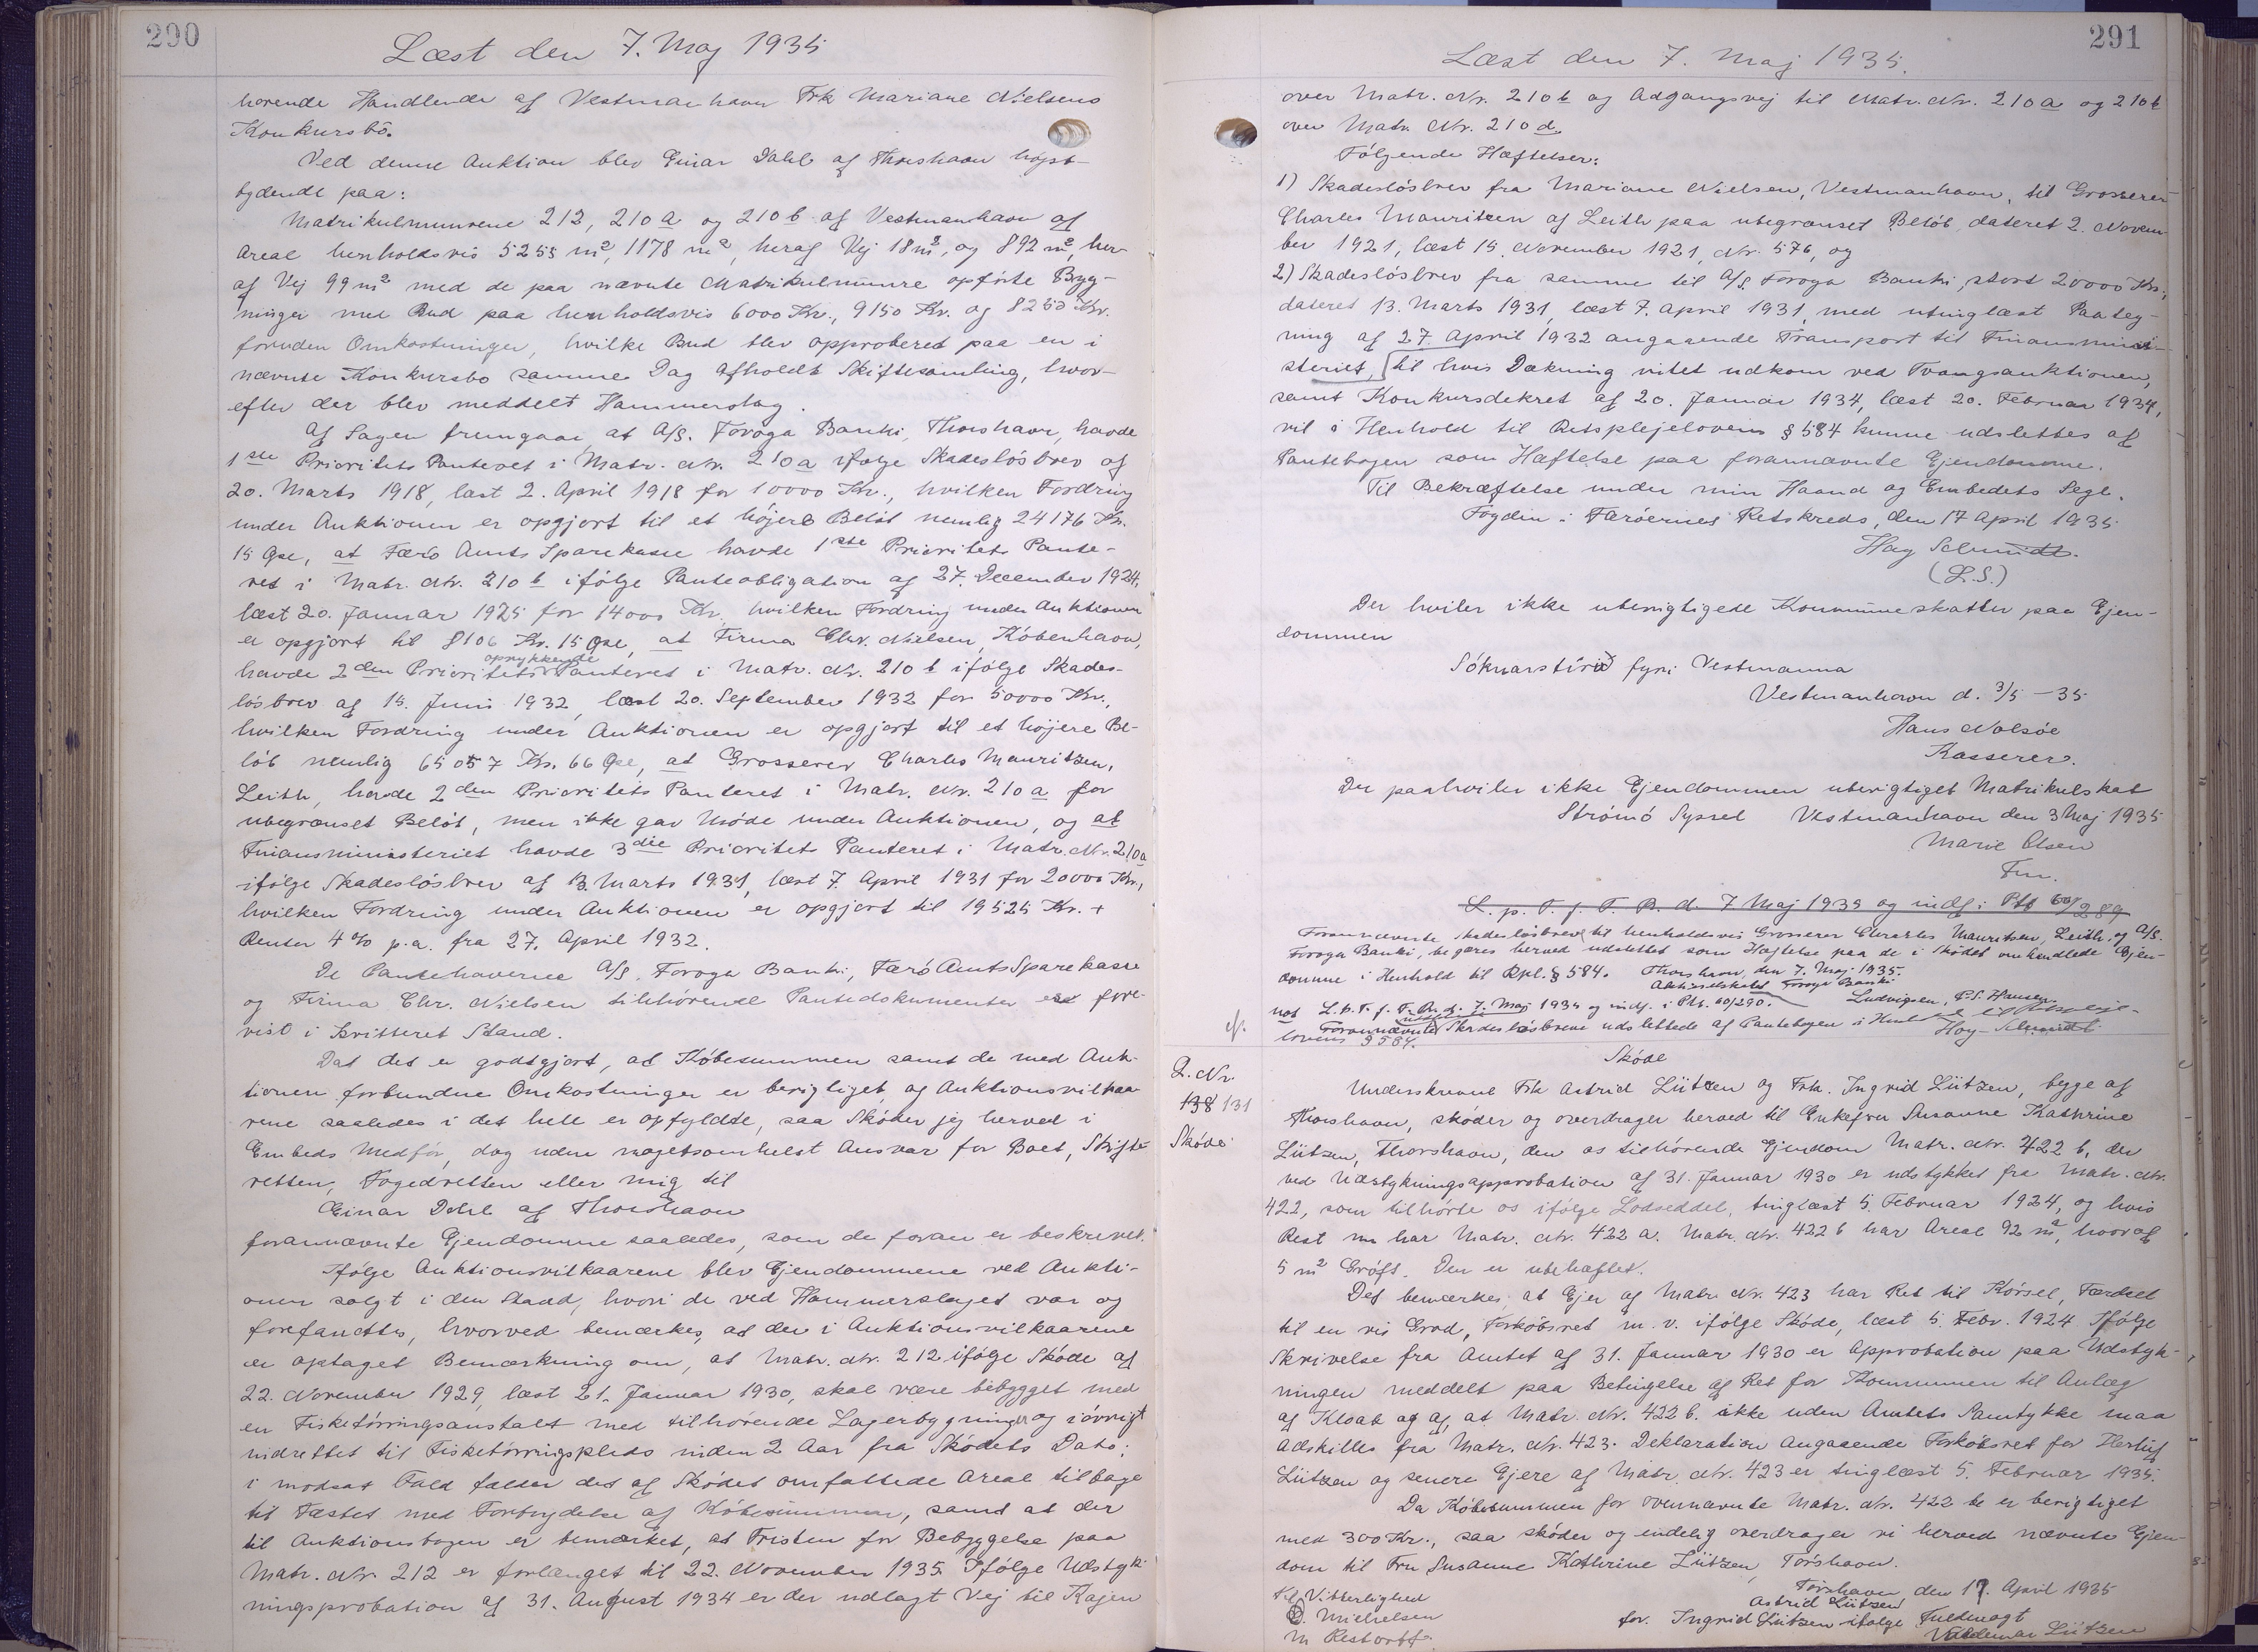 290
Læst den 7. Maj 1935
hørende Handlende af Vestmanhavn Frk Mariane Nielsens
Konkursbo.
Ved denne Auktion blev Einar Dahl af Thorshavn højst-
bydende paa:
Matrikulnumrene 212, 210 a og 210 b af Vestmanhavn af
Areal henholdsvis 5255 m², 1178 m², heraf Vej 18 m², og 892 m², her-
af Vej 99 m² med de paa nævnte Matrikulnumre opførte Byg-
ninger med Bud paa henholdsvis 6000 Kr., 9150 Kr. og 8250 Kr.
foruden Omkostninger, hvilke Bud blev approberet paa en i
nævnte Konkursbo samme Dag afholdt Skiftesamling, hvor-
efter der blev meddelt Hammerslag.
Af Sagen fremgaar at A/S. Føroya Banki, Thorshavn, havde
1ste Prioritets Panteret i Matr. Nr. 210 a ifølge Skadesløsbrev af
20. Marts 1918, læst 2. April 1918 for 10000 Kr., hvilken Fordring
under Auktionen er opgjort til et højere Beløb nemlig 24176 Kr.
15 Øre, at Færø Amts Sparekasse havde 1ste Prioritets Pante-
ret i Matr. Nr. 210 b ifølge Panteobligation af 27. December 1924,
læst 20. Januar 1925 for 14000 Kr. hvilken Fordring under Auktionen
er opgjort til 8106 Kr. 15 Øre, at Firma Chr. Nielsen, København,
havde 2den Prioritets oprykkende Panteret i Matr. Nr. 210 b ifølge Skades-
løsbrev af 15. Juni 1932, læst 20. September 1932 for 50000 Kr.,
hvilken Fordring under Auktionen er opgjort til et højere Be-
løb nemlig 65057 Kr. 66 Øre, at Grosserer Charles Mauritzen,
Leith, havde 2den Prioritets Panteret i Matr. Nr. 210 a for
ubegrænset Beløb, men ikke gav Møde under Auktionen, og at
Finansministeriet havde 3die Prioritets Panteret i Matr. Nr. 210a
ifølge Skadesløsbrev af 13. Marts 1931, læst 7. April 1931 for 20000 Kr.,
hvilken Fordring under Auktionen er opgjort til 19525 Kr. +
Renter 4% p.a. fra 27. April 1932.
De Panthaverne A/S. Føroya Banki, Færø Amts Sparekasse
og Firma Chr. Nielsen tilhørende Pantedokumenter er fore-
vist i kvitteret Stand.
Da det er godtgjort, at Købesummen samt de med Auk-
tionen forbundne Omkostninger er berigtiget og Auktionsvilkaa-
rene saaledes i det hele er opfyldte, saa Skøder jeg herved i
Embeds Medfør, dog uden nogetsomhelst Ansvar for Boet, Skifte-
retten, Fogedretten eller mig til
Einar Dahl af Thorshavn
forannævnte Ejendomme saaledes, som de foran er beskrevet.
Ifølge Auktionsvilkaarene blev Ejendommene ved Aukti-
onen solgt i den Stand, hvori de ved Hammerslaget var og
forefandtes, hvorved bemærkes, at der i Auktionsvilkaarene
er optaget Bemærkning om, at Matr. Nr. 212 ifølge Skøde af
22. November 1929, læst 21. Januar 1930, skal være bebygget med
en Fisketørringsanstalt med tilhørende Lagerbygninger og iøvrigt
indrettet til Fisketørringsplads inden 2 Aar fra Skødets Dato;
i modsat Fald falder det af Skødet omfattede Areal tilbage
til Fæstet med Fortrydelse af Købesummen, samt at der
til Auktionsbogen er bemærket, at Fristen for Bebyggelse paa
Matr. Nr. 212 er forlænget til 22. November 1935. Ifølge Udstyk-
ningsprobation af 31. August 1934 er der udlagt Vej til Kajen
291
Læst den 7. Maj 1935.
over Matr. Nr. 210 b og Adgangsvej til Matr. Nr. 210 a og 210 b
over Matr. Nr. 210 d.
Følgende Hæftelser:
1) Skadesløsbrev fra Mariane Nielsen, Vestmanhavn, til Grosserer
Charles Mauritzen af Leith paa ubegrænset Beløb, dateret 2. Novem-
ber 1921, læst 15. November 1921, Nr. 576, og
2) Skadesløsbrev fra samme til A/S. Føroya Banki, stort 20000 Kr.,
dateret 13. Marts 1931, læst 7. April 1931, med utinglæst Paateg-
ning af 27. April 1932 angaaende Transport til Finansmini-
steriet, til hvis Dækning intet udkom ved Tvangsauktionen,
samt Konkursdekret af 20. Januar 1934, læst 20. Februar 1934,
vil i Henhold til Retsplejelovens § 584 kunne udslettes af
Pantebogen som Hæftelse paa forannævnte Ejendomme.
Til Bekræftelse under min Haand og Embedets Segl.
Fogden i Færøernes Retskreds, den 17 April 1935
Hay Schmidt.
(L.S.)
Der hviler ikke uberigtigede Kommuneskatter paa Ejen-
dommen
Sóknarstýrið fyri Vestmanna
Vestmanhavn d. 3/5 - 35
Hans Nolsøe
Kasserer.
Der paahviler ikke Ejendommen uberigtiget Matrikulskat
Strømø Syssel Vestmanhavn den 3 Maj 1935
Marie Olsen
Fm.
L. p. T. f. F. R. d. 7 Maj 1935 og indf. i Ptb 60/289
Forannævnte Skadesløsbreve til henholdsvis Grosserer Charles Mauritzen, Leith, og A/S.
Føroya Banki, begæres herved udslettet som Hæftelse paa de i Skødet omhandlede Ejen-
domme i Henhold til Rpl. § 584. Thorshavn, den 7. Maj 1935.
Aktieselskabet Føroya Banki
Ludvigsen, P.S. Hansen.
not L.p.T. f. F. R. d. 7. Maj 1935 og indf. i Ptb. 60/290.
cf. Forannævnte Skadesløsbreve udslettede af Pantebogen i Henhold til Retspleje-
lovens § 584. Hay-Schmidt
Skøde
Q. Nr.
138 131
Skøde
Underskrevne Frk Astrid Lützen og Frk. Ingrid Lützen, begge af
Thorshavn, skøder og overdrager herved til Enkefru Susanne Kathrine
Lützen, Thorshavn, den os tilhørende Ejendom Matr. Nr. 422 b, der
ved Udstykningsapprobation af 31. Januar 1930 er udstykket fra Matr. Nr.
422, som tilhørte os ifølge Lodseddel, tinglæst 5. Februar 1924, og hvis
Rest nu har Matr. Nr. 422 a. Matr. Nr. 422 b har Areal 92 m², hvoraf
5 m² Grøft. Den er ubehæftet.
Det bemærkes, at Ejer af Matr. Nr. 423 har Ret til Kørsel, Færdsel
til en vis Grad, Forkøbsret m. v. ifølge Skøde, læst 5. Febr. 1924 Ifølge
Skrivelse fra Amtet af 31. Januar 1930 er Approbation paa Udstyk-
ningen meddelt paa Betingelse af Ret for Kommunen til Anlæg
af Kloak og af, at Matr. Nr. 422 b. ikke uden Amtets Samtykke maa
adskilles fra Matr. Nr. 423. Deklaration angaaende Forkøbsret for Herluf
Lützen og senere Ejere af Matr. Nr. 423 er tinglæst 5. Februar 1935.
Da Købesummen for overnævnte Matr. Nr. 422 b er berigtiget
med 300 Kr., saa skøder og endelig overdrager vi herved nævnte Ejen-
dom til Fru Susanne Kathrine Lützen, Tórshavn.
Tórshavn, den 17. April 1935
Til Vitterlighed
Astrid Lützen
Mikkelsen
for. Ingrid Lützen ifølge Fuldmagt
M Restorff.
Valdemar Lützen